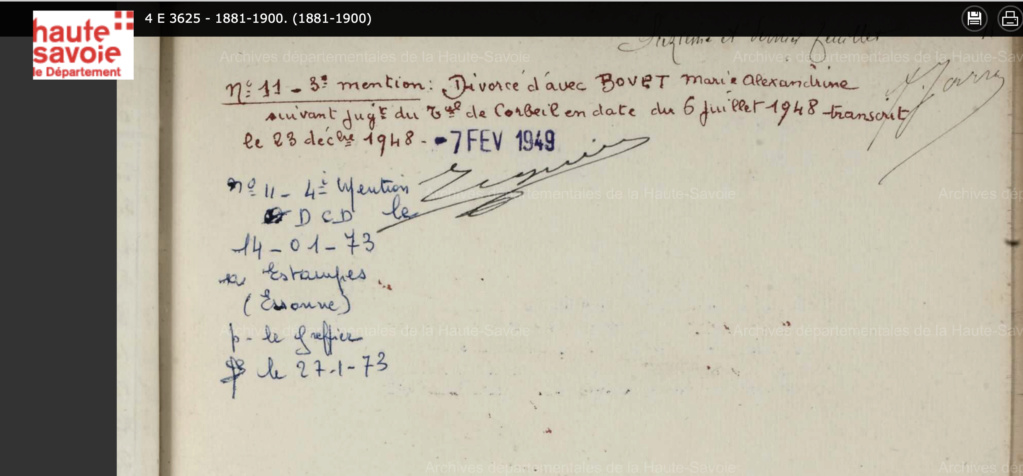 haute
savoie
le Département
4 E 3625 - 1881-1900. (1881-1900)
feuillet
nº 11 - 3e mention: Divorcé d'avec BOVET Marie Alexandrine
suivant jugt du Tral de Corbeil en date du 6 juillet 1948 transcrit
le 23 décbre 1948 - -7 FEV 1949
nº 11 - 4e Mention
DCD le
14-01-73
a Estampes
(Essonne)
p. le Greffier
le 27-1-73
Archives départementales de la Haute-Savoie